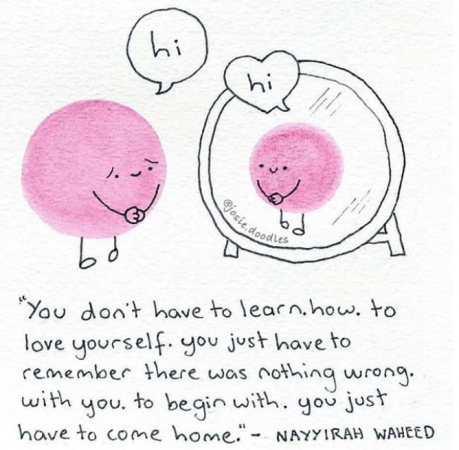 hi
hi
@josie.doodles
"You don't have to learn.how. to
love yourself. you just have to
remember there was nothing wrong.
with you. to begin with. you just
have to come home." - NAYYIRAH WAHEED